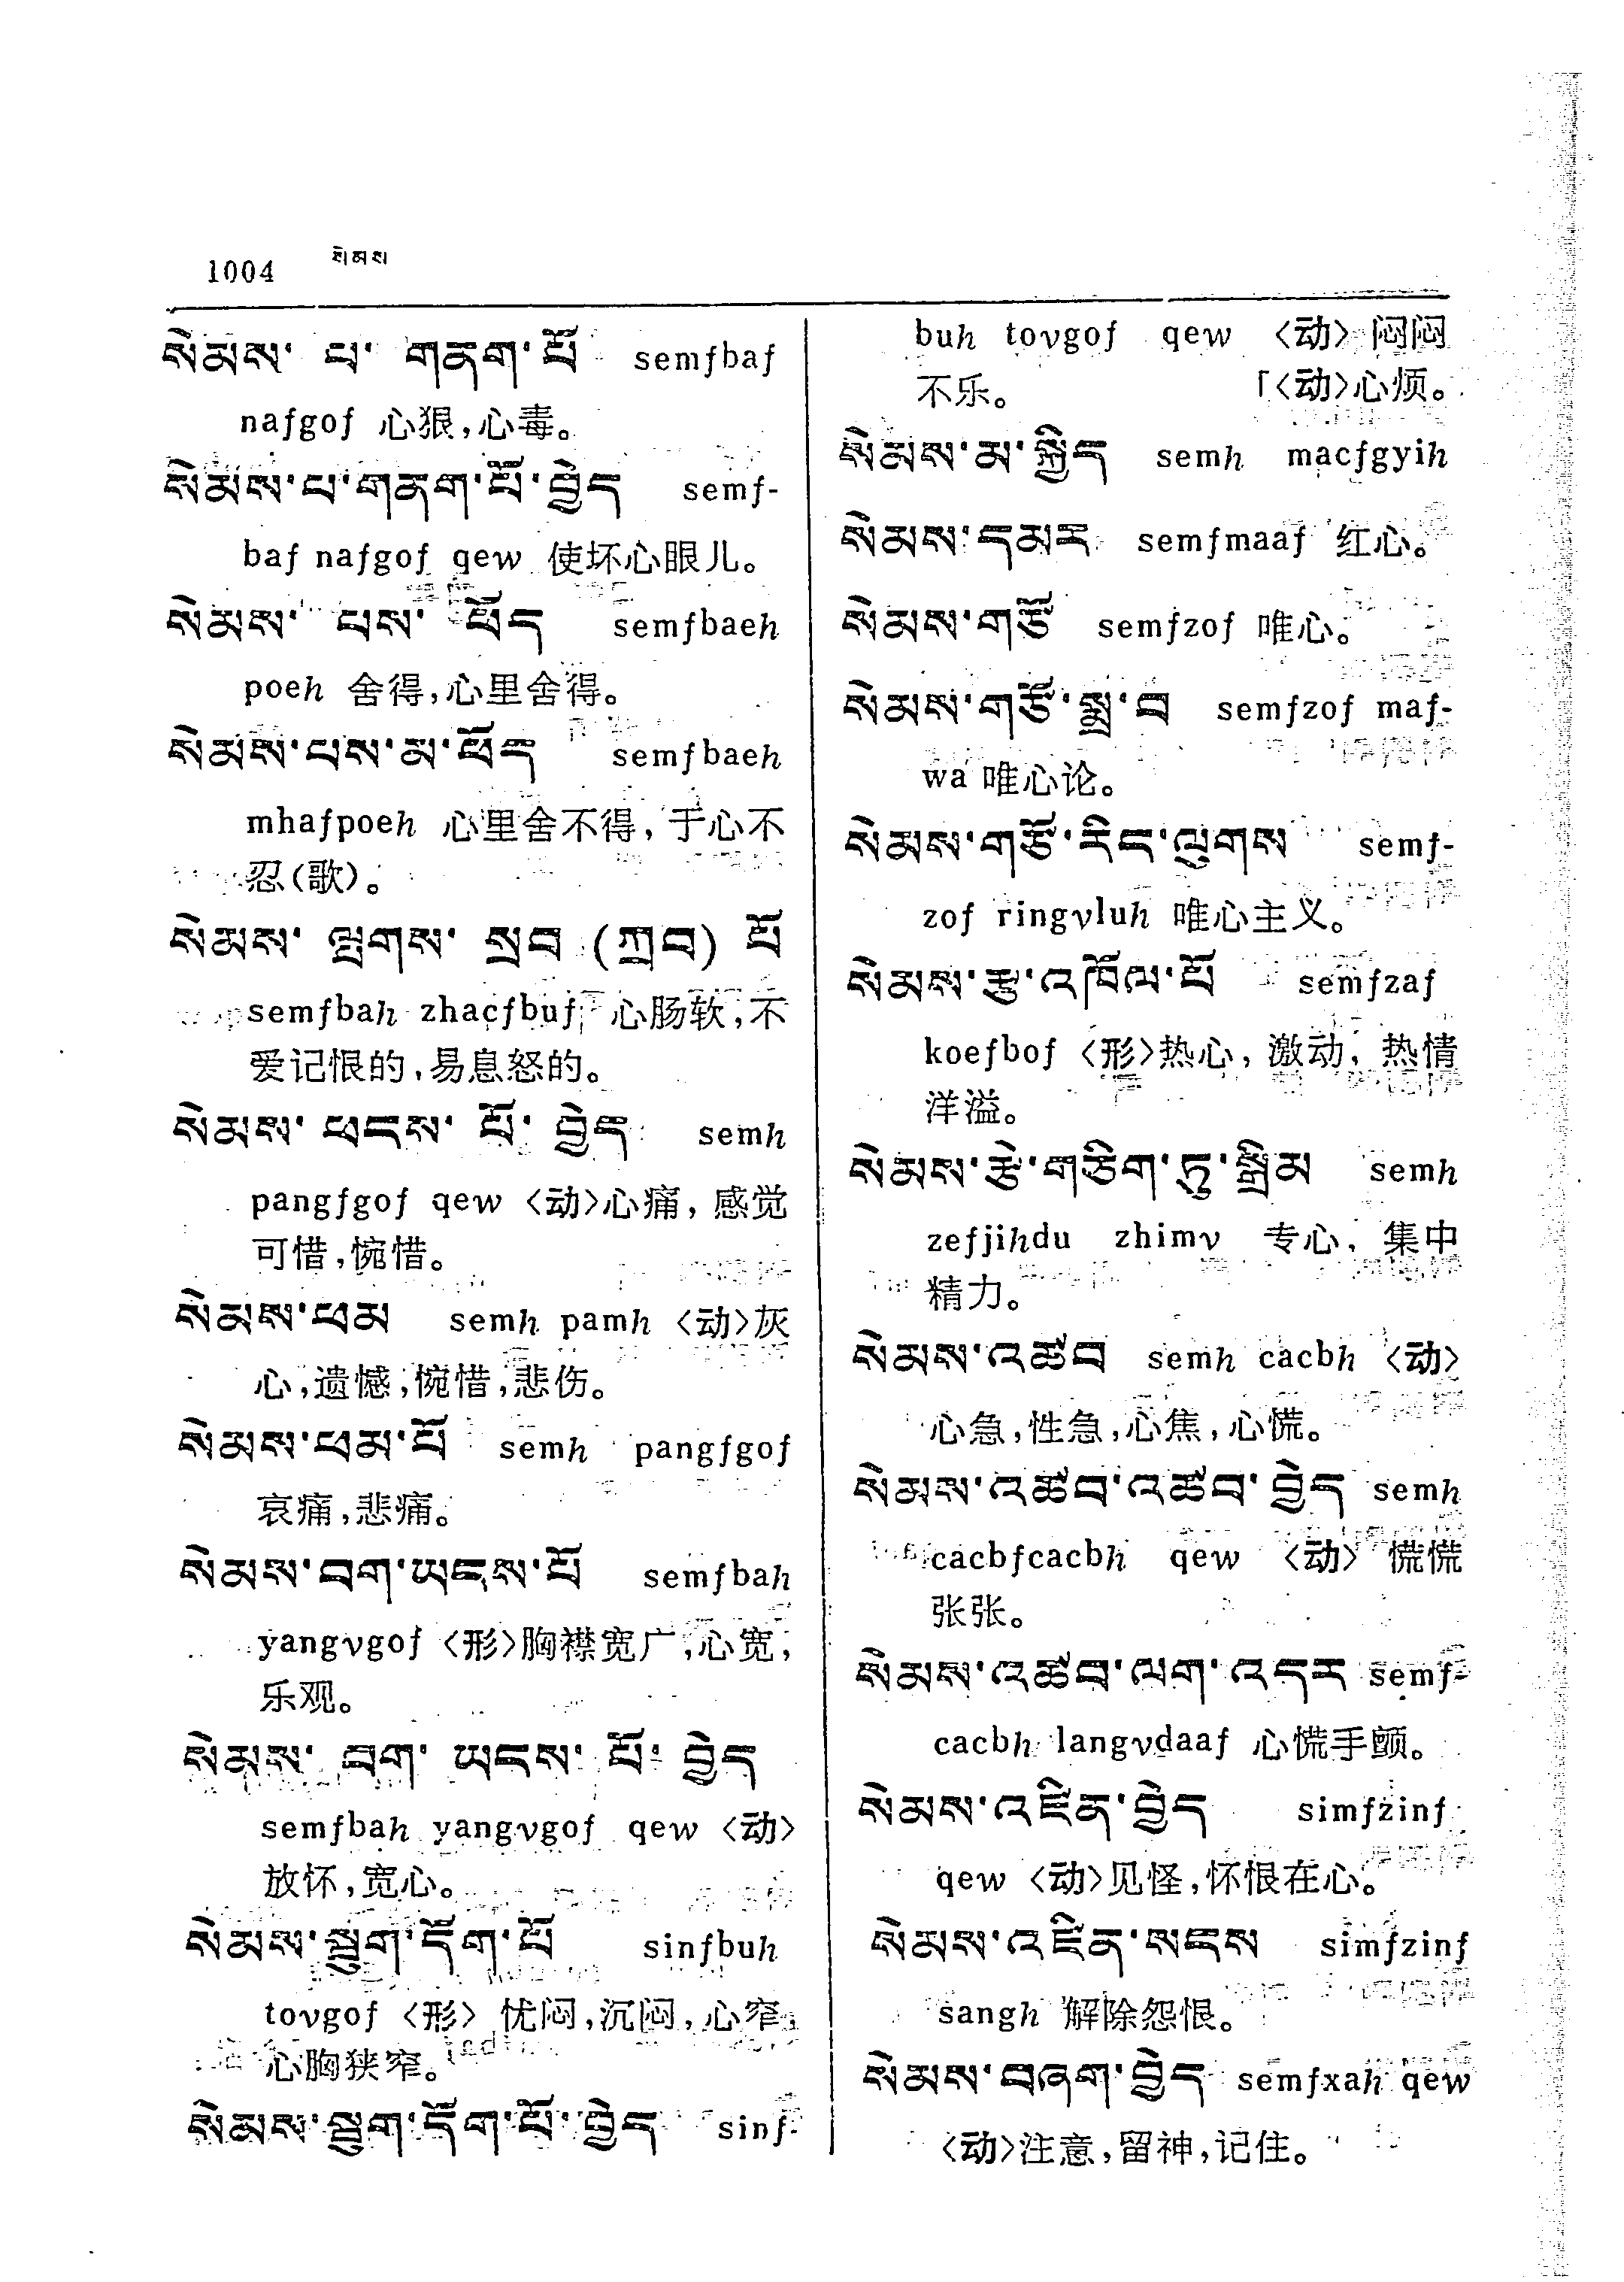 1004 སེམས།
སེམས་ པ་ གནག་པོ semfbaf
nafgof 心狠,心毒。
སེམས་པ་གནག་པོ་བྱེད semf-
baf nafgof qew 使坏心眼儿。
སེམས་ པས་ ཕོད semfbaeh
poeh 舍得,心里舍得。
སེམས་པས་མ་ཕོད semfbaeh
mhafpoeh 心里舍不得, 于心不
忍(歌)。
སེམས་ ལྤགས་ སྲབ (ཀྲབ) པོ
semfbah zhacfbuf 心肠软,不
爱记恨的,易息怒的。
སེམས་ ཕངས་ པོ་ བྱེད semh
pangfgof qew 〈动〉心痛, 感觉
可惜,惋惜。
སེམས་ཕམ semh pamh 〈动〉灰
心,遗憾,惋惜,悲伤。
སེམས་ཕམ་པོ semh pangfgof
哀痛,悲痛。
སེམས་བག་ཡངས་པོ semfbah
yangvgof 〈形〉胸襟宽广,心宽,
乐观。
སེམས་ བག་ ཡངས་ པོ་ བྱེད
semfbah yangvgof qew 〈动〉
放怀,宽心。
སེམས་སྦུག་དོག་པོ sinfbuh
tovgof 〈形〉 忧闷,沉闷,心窄,
心胸狭窄。
སེམས་སྦུག་དོག་པོ་བྱེད sinf-
buh tovgof qew 〈动〉 闷闷
不乐。 「〈动〉心烦。
སེམས་མ་སྐྱིད semh macfgyih
སེམས་དམར semfmaaf 红心。
སེམས་གཙོ semfzof 唯心。
སེམས་གཙོ་སྨྲ་བ semfzof maf-
wa 唯心论。
སེམས་གཙོ་རིང་ལུགས semf-
zof ringvluh 唯心主义。
སེམས་རྩ་འཁོལ་པོ semfzaf
koefbof 〈形〉热心, 激动, 热情
洋溢。
སེམས་རྩེ་གཅིག་ཏུ་སྒྲིམ semh
zefjihdu zhimv 专心, 集中
精力。
སེམས་འཚབ semh cacbh 〈动〉
心急,性急,心焦,心慌。
སེམས་འཚབ་འཚབ་བྱེད semh
cacbfcacbh qew 〈动〉 慌慌
张张。
སེམས་འཚབ་ལག་འདར semf-
cacbh langvdaaf 心慌手颤。
སེམས་འཛིན་བྱེད simfzinf
qew 〈动〉见怪,怀恨在心。
སེམས་འཛིན་སངས simfzinf
sangh 解除怨恨。
སེམས་བཞག་བྱེད semfxah qew
〈动〉注意,留神,记住。